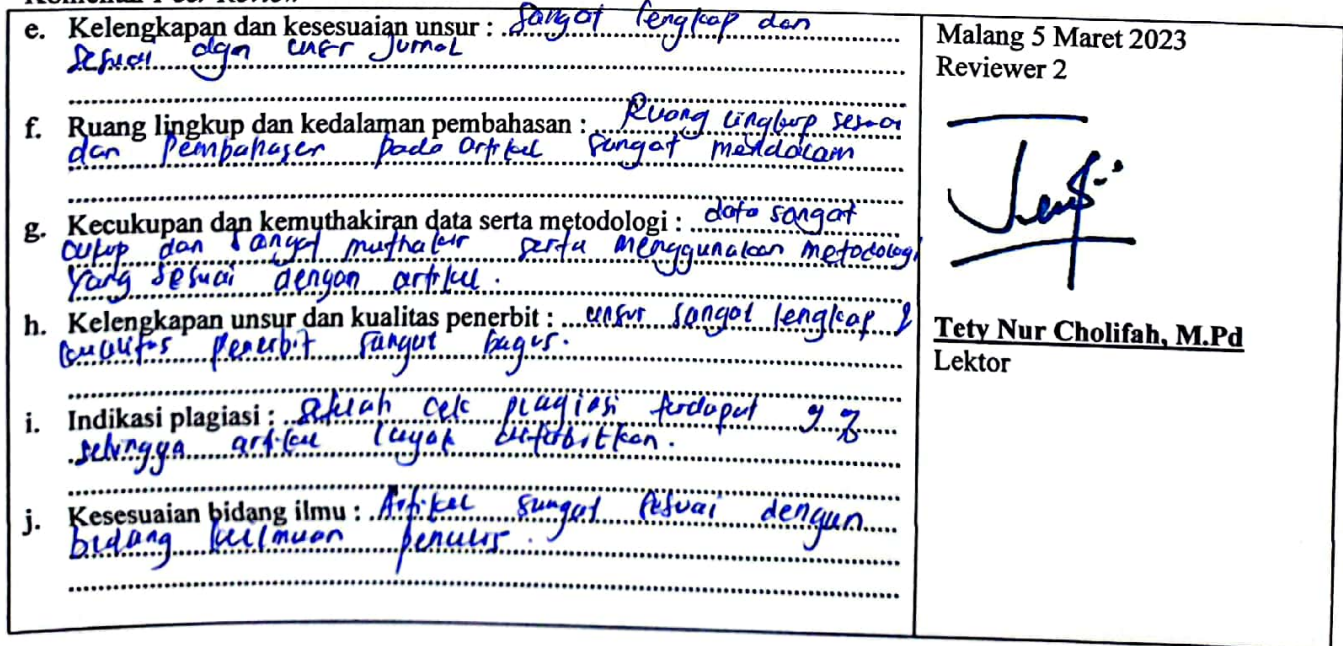 Komentar Peer Review
e. Kelengkapan dan kesesuaian unsur : Sangat lengkap dan
sesuai dgn unsur jurnal
f. Ruang lingkup dan kedalaman pembahasan : Ruang lingkup sesuai
dan Pembahasan pada artikel sangat mendalam
g. Kecukupan dan kemuthakiran data serta metodologi : data sangat
cukup dan sangat muthakir serta menggunakan metodologi
yang sesuai dengan artikel.
h. Kelengkapan unsur dan kualitas penerbit : unsur sangat lengkap &
kualitas penerbit sangat bagus.
i. Indikasi plagiasi : setelah cek plagiasi terdapat 9 %
sehingga artikel layak diterbitkan.
j. Kesesuaian bidang ilmu : Artikel sangat sesuai dengan
bidang keilmuan penulis.
Malang 5 Maret 2023
Reviewer 2
Tety Nur Cholifah, M.Pd
Lektor